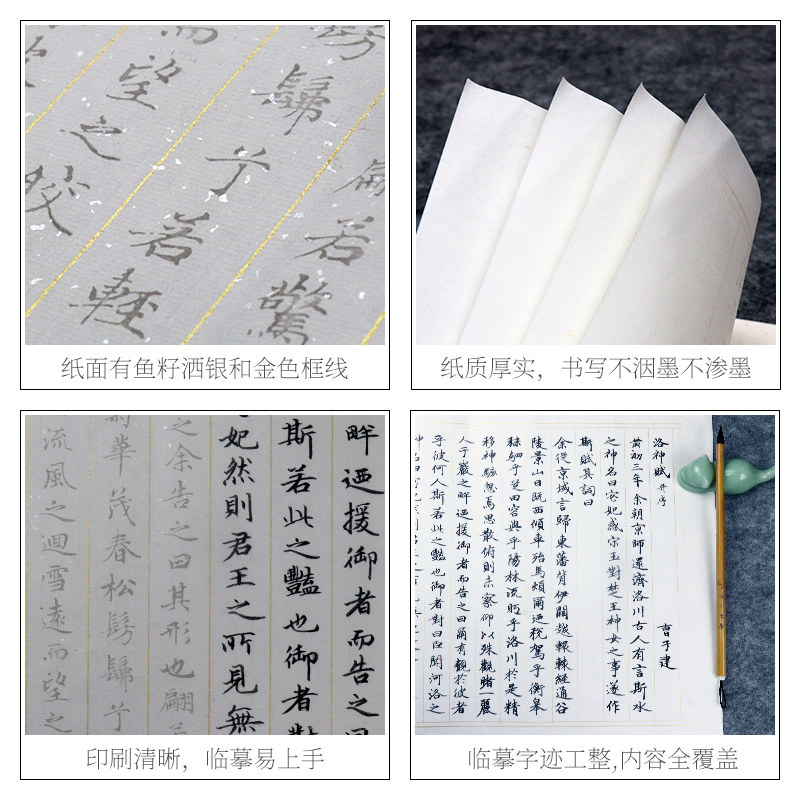 而望之皎
髴兮若輕
若驚
纸面有鱼籽洒银和金色框线
纸质厚实，书写不洇墨不渗墨
畔迺援御者而告之曰
斯若此之豔也御者對
妃然則君王之所見無
之余告之曰其形也翩
華茂春松髣髴兮
流風之迴雪遠而望之
印刷清晰，临摹易上手
洛神賦 并序
曹子建
黃初三年余朝京師還濟洛川古人有言斯水
之神名曰宓妃感宋玉對楚王神女之事遂作
斯賦其詞曰
余從京域言歸東藩背伊闕越轘轅經通谷
陵景山日既西傾車殆馬煩爾迺稅駕乎衡皋
秣駟乎芝田容與乎陽林流眄乎洛川於是精
移神駭忽焉思散俯則未察仰以殊觀睹一麗
人于巖之畔迺援御者而告之曰爾有覿於彼者
乎彼何人斯若此之豔也御者對曰臣聞河洛之
临摹字迹工整,内容全覆盖